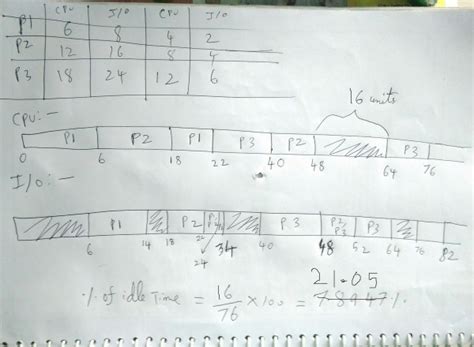 CPU I/O CPU I/O
P1 6 8 4 2
P2 12 16 8 4
P3 18 24 12 6
16 units
CPU:-
P1 P2 P1 P3 P2 P3
0 6 18 22 40 48 64 76
I/O:-
P1 P2 P3 P2 P3 P3
6 14 18 22 24 34 40 48 52 64 76 82
21.05
% of idle Time = 16/76 × 100 = %